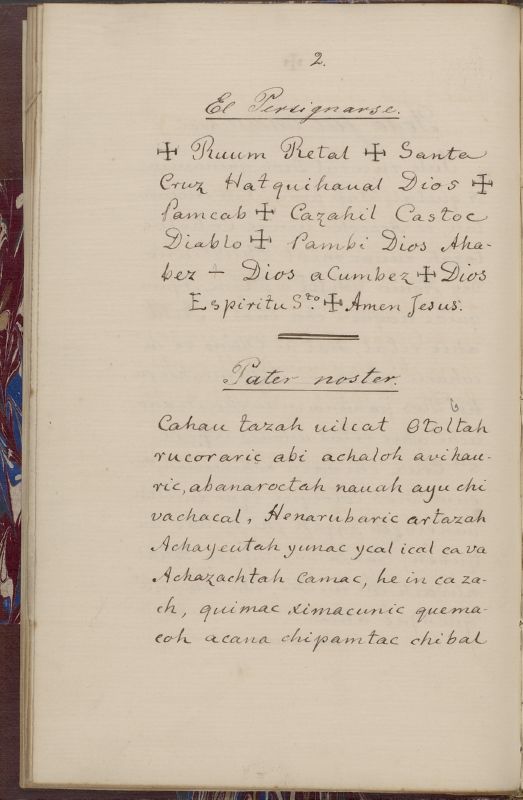 2.
El Persignarse.
✠ Ruum Retal ✠ Santa
Cruz Hatquihaual Dios ✠
Pamcab ✠ Cazahil Castoc
Diablo ✠ Pambi Dios Aha-
bez — Dios aCumbez ✠ Dios
Espiritu Sto. ✠ Amen Jesus.
Pater noster.
Cahau tazah uilcat Otoltah
rucoraric abi achaloh avihau-
ric, abanaroctah nauah ayu chi
vachacal, Henarubaric artazah
Achayeutah yunac ycal ical cava
Achazachtah Camac, he in caza-
ch, quimac ximacunic quema-
coh acana chipamtac chibal